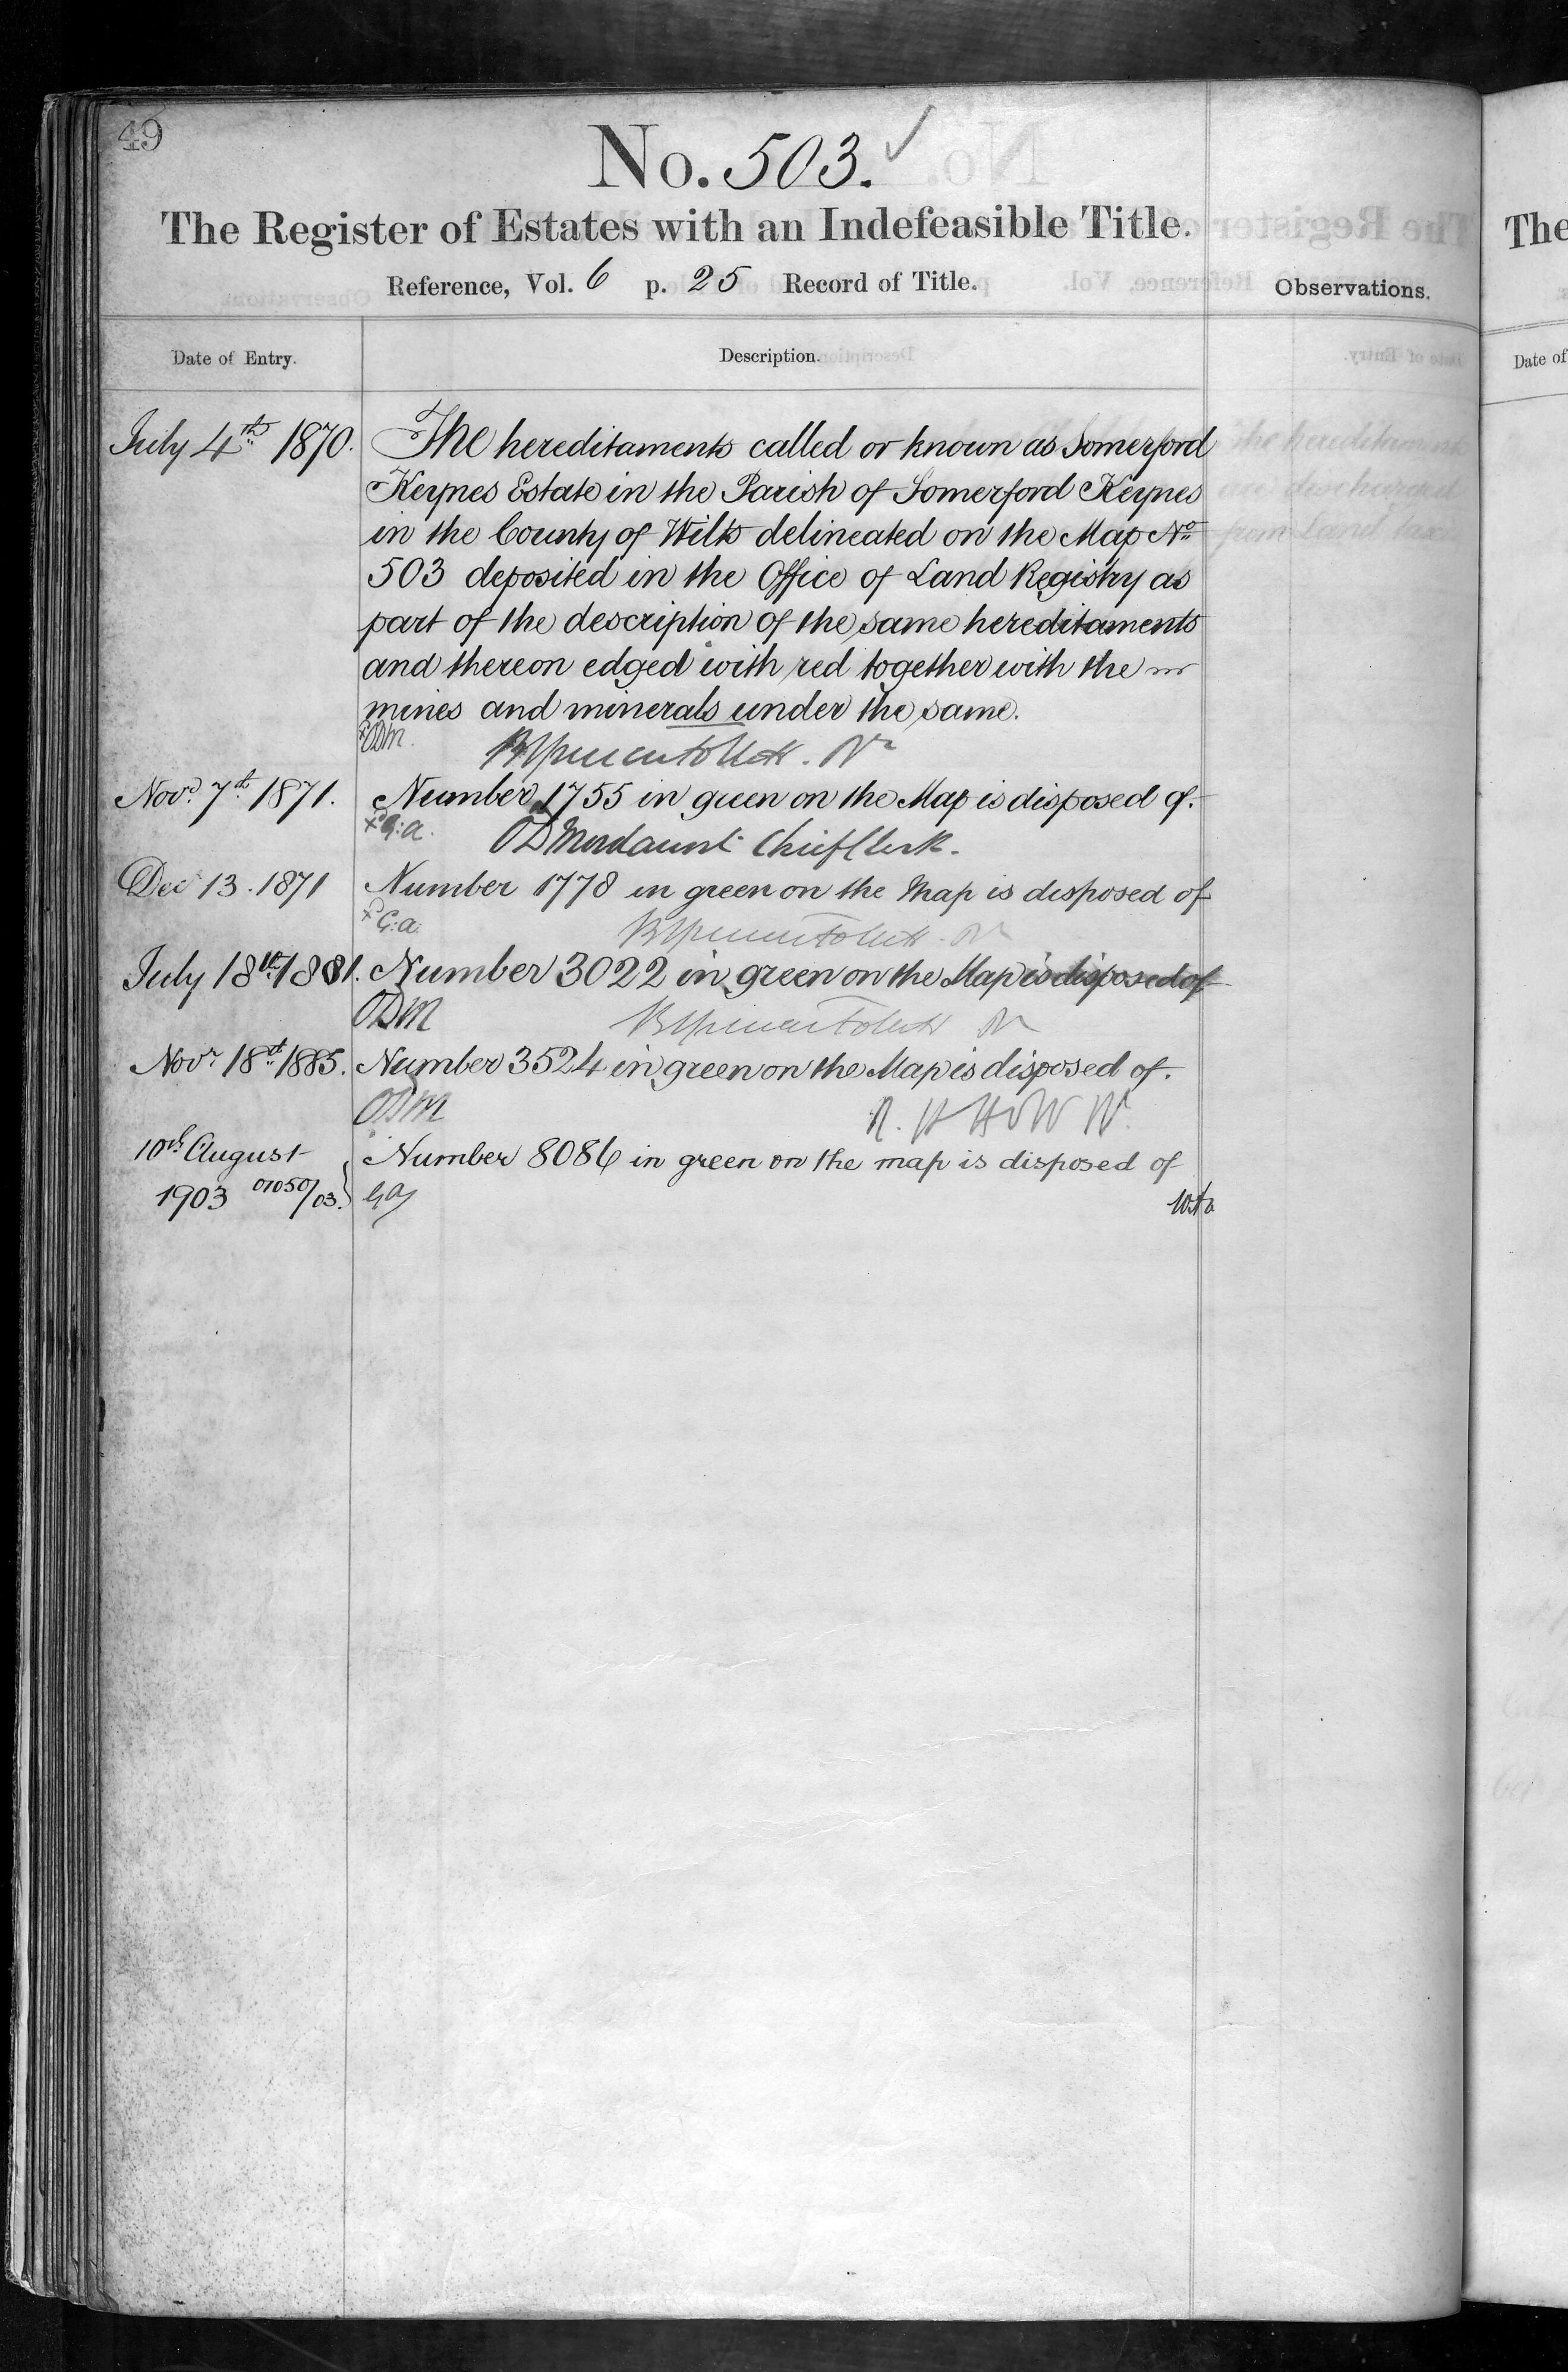 49
No. 503.
The Register of Estates with an Indefeasible Title.
Reference, Vol. 6 p. 25 Record of Title.
Observations.
Date of Entry.
Description.
July 4th 1870. The hereditaments called or known as Somerford
Keynes Estate in the Parish of Somerford Keynes
in the County of Wilts delineated on the Map No
503 deposited in the Office of Land Registry as
part of the description of the same hereditaments
and thereon edged with red together with the
mines and minerals under the same.
ODM.
Novr 7th 1871. Number 1755 in green on the Map is disposed of.
G:a. ODMordaunt Chief Clerk.
Dec 13. 1871 Number 1778 in green on the Map is disposed of
G:a.
July 18th 1881. Number 3022 in green on the Map is disposed of
ODM
Novr 18th 1885. Number 3524 in green on the Map is disposed of.
ODM
10th August Number 8086 in green on the map is disposed of
1903 01050/03.
the hereditaments
are discharged
from Land tax
The
Date of